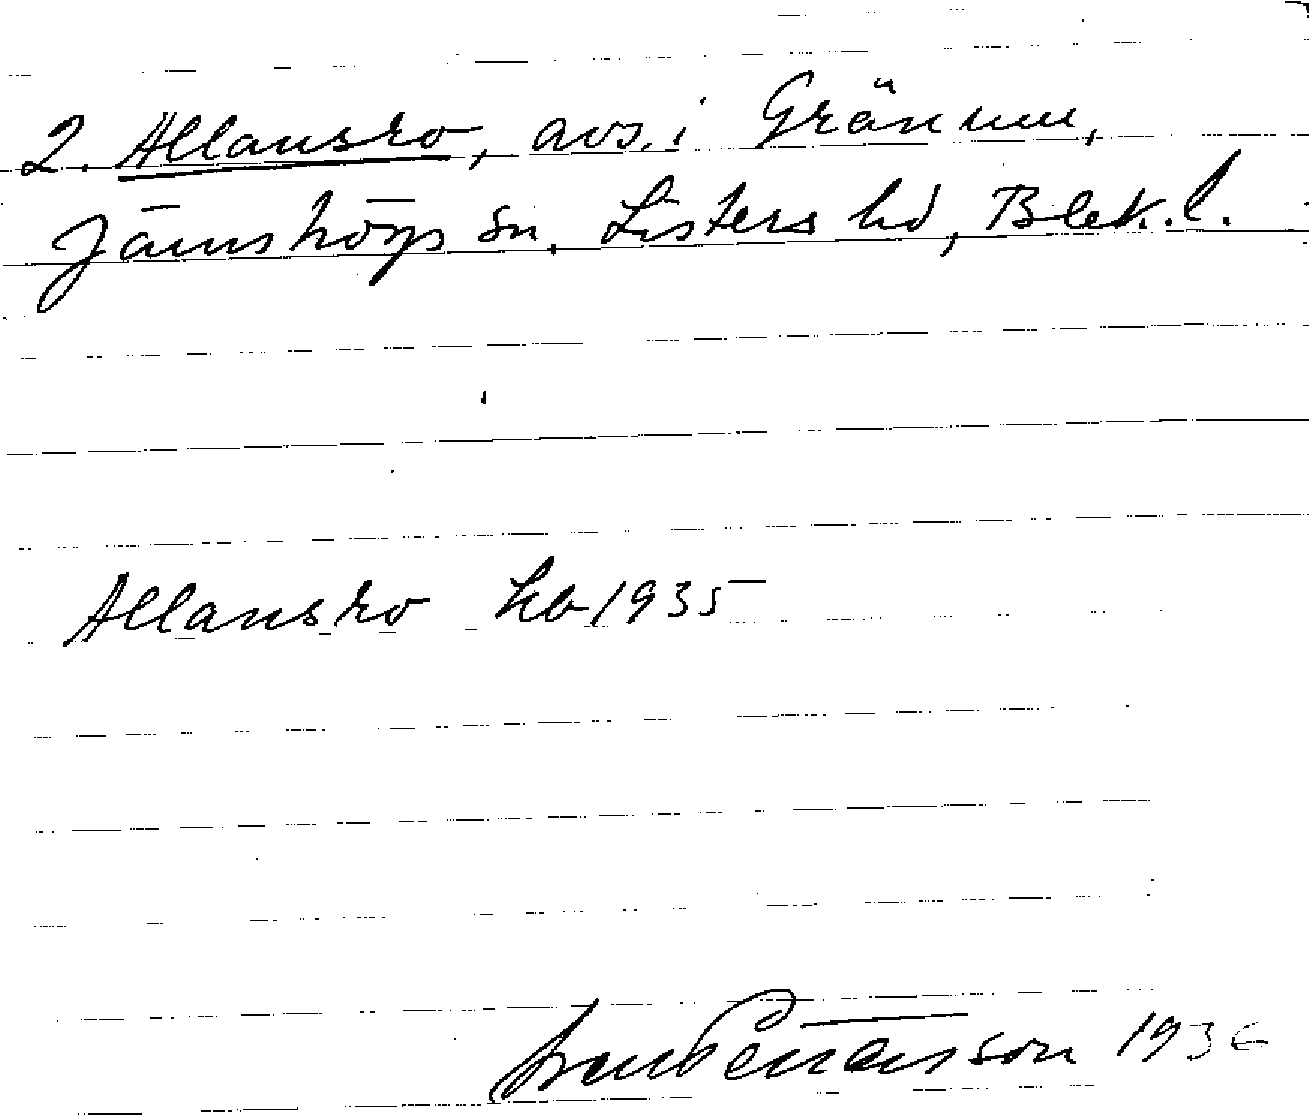 2. Allansro, avs. i Gränum,
Jämshögs sn, Listers hd, Blek. l.
Allansro hb 1935
Pettersson 1936